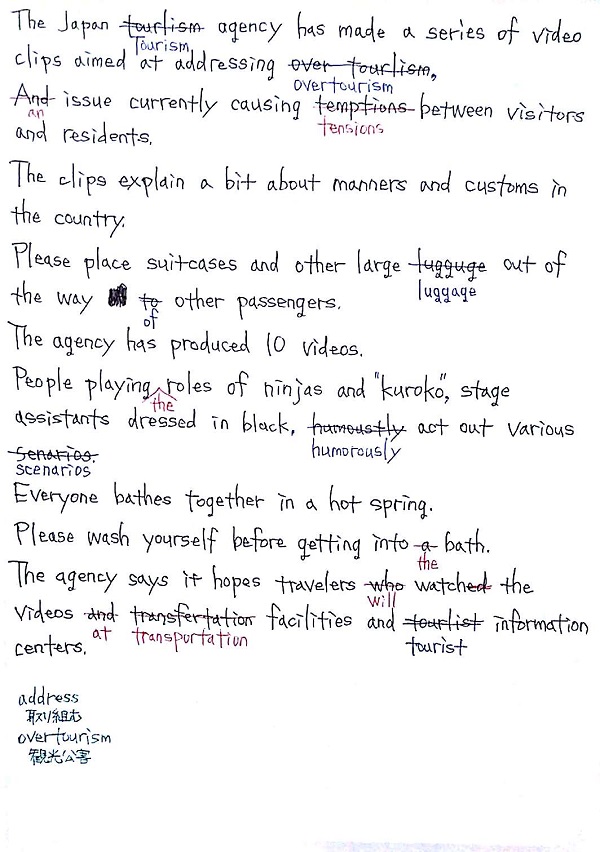 The Japan tourlism agency has made a series of video
Tourism
clips aimed at addressing over tourlism,
overtourism
And issue currently causing temptions between visitors
an
tensions
and residents.
The clips explain a bit about manners and customs in
the country.
Please place suitcases and other large lugguge out of
luggage
the way to other passengers.
of
The agency has produced 10 videos.
People playing roles of ninjas and "kuroko", stage
the
assistants dressed in black, humoustly act out various
humorously
Senarios.
scenarios
Everyone bathes together in a hot spring.
Please wash yourself before getting into a bath.
the
The agency says it hopes travelers who watched the
will
videos and transfertation facilities and tourlist information
at transportation
tourist
centers.
address
取り組む
overtourism
観光公害